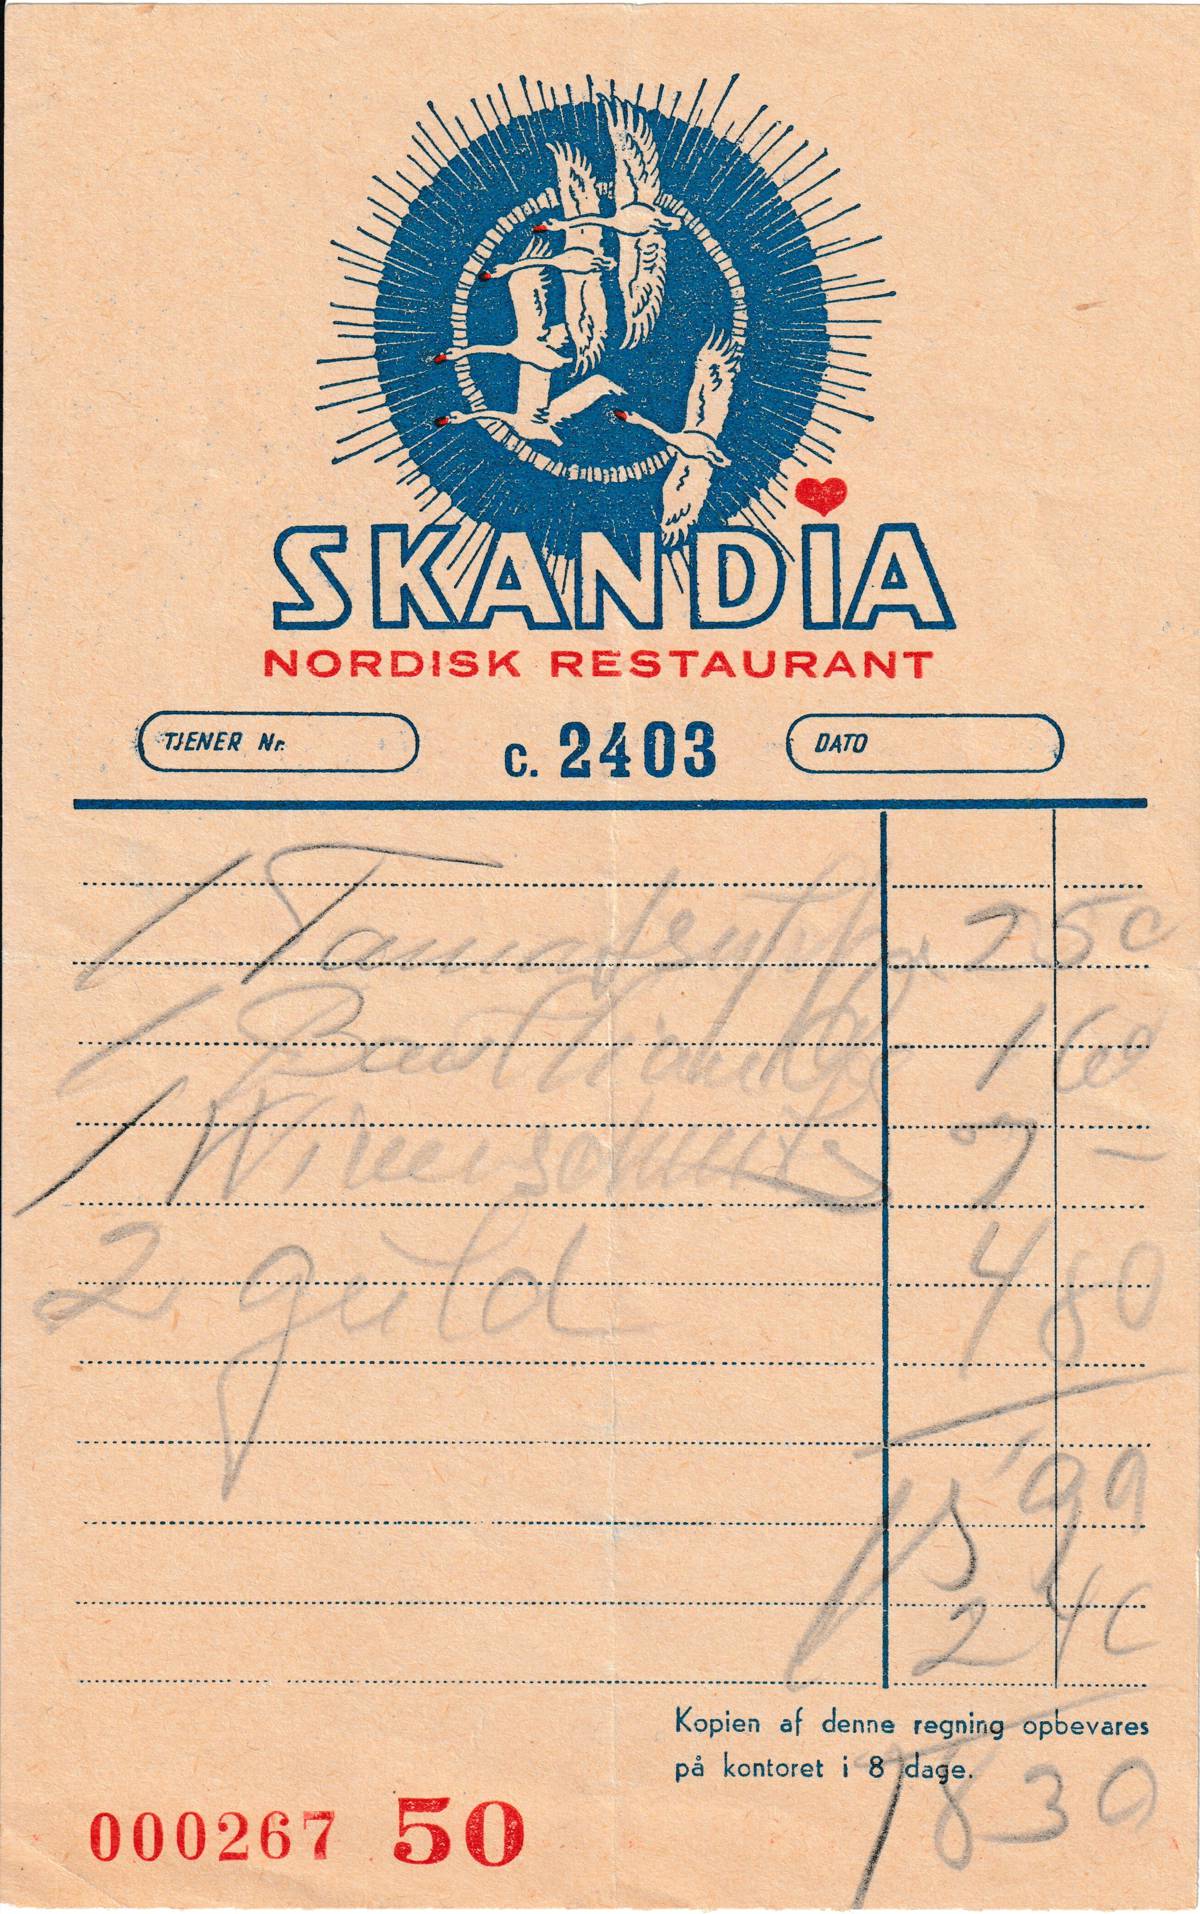 SKANDIA
NORDISK RESTAURANT
TJENER Nr.
C. 2403
DATO
1 2 50
1 1 60
1 Wienerschnitz 7 –
2 guld 4 80
15 90
2 40
Kopien af denne regning opbevares
på kontoret i 8 dage.
18 30
000267 50